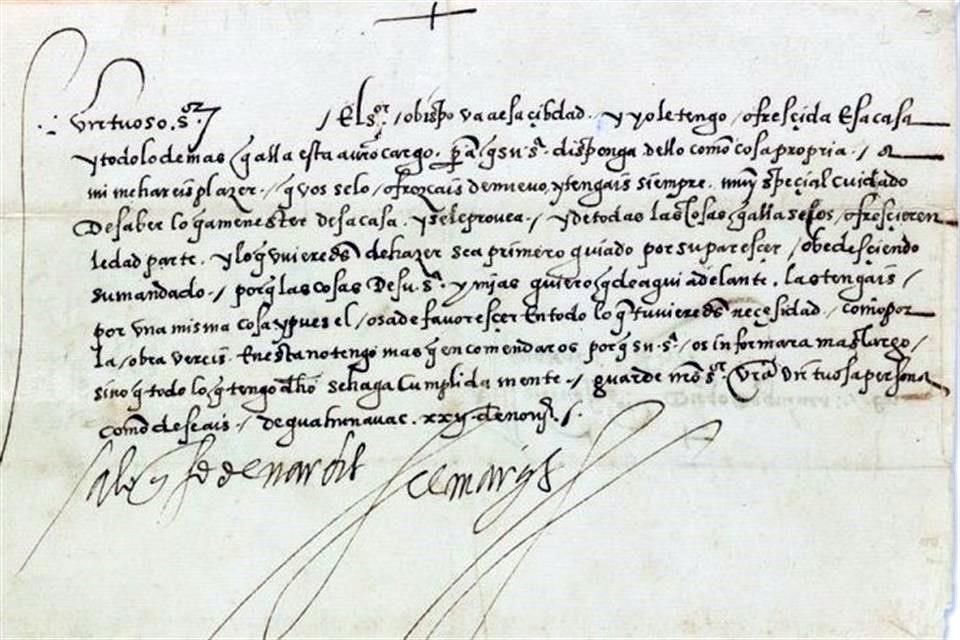 virtuoso .sºr.
/ El sºr / obispo va a esa çibdad . y yo le tengo / ofresçida esa casa
y todo lo demas q alla esta a vro cargo . pa q su sª disponga dello como cosa propria . / a
mi me hareis plazer . / q vos se lo / ofrozcais de nuevo, y tengais siempre . muy speçial cuidado
de saber lo q a menester de sa casa . y se le provea . / y de todas las cosas q alla se los / ofresçieren
le dad parte . y lo q uuiereds de hazer sea primero guiado por su paresçer / obedesçiendo
su mandado . / porq las cosas de su sª y mias quiero q de aqui adelante . las tengais /
por vna misma cosa y pues el / os a de favoresçer en todo lo q tuuiereds neçesidad . como por
la / obra vereis . En esta no tengo mas q encomendaros porq su sª / os informara mas largo /
sino q todo lo q tengo dho se haga cumplidamente . / guarde nro sºr . vra virtuosa persona
como deseais . / de guahunavac . xxv de
el marqs